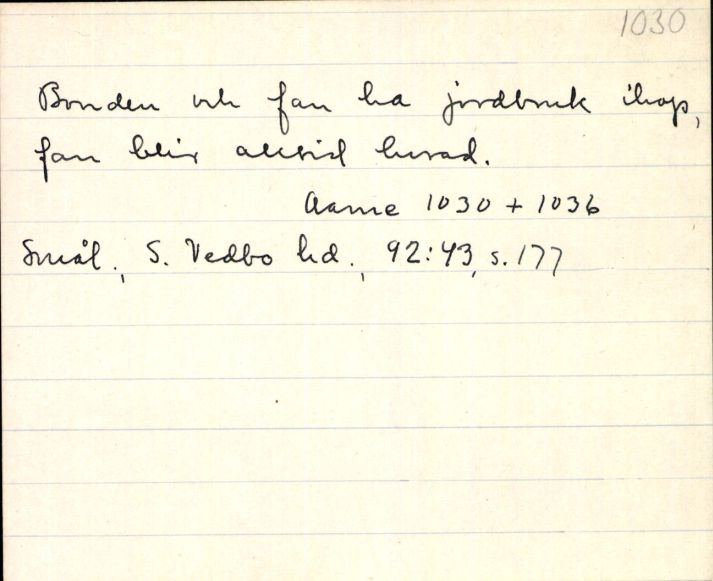 1030
Bonden och fan ha jordbruk ihop,
fan blir alltid lurad.
Aarne 1030 + 1036
Smål., S. Vedbo hd., 92:43, s. 177